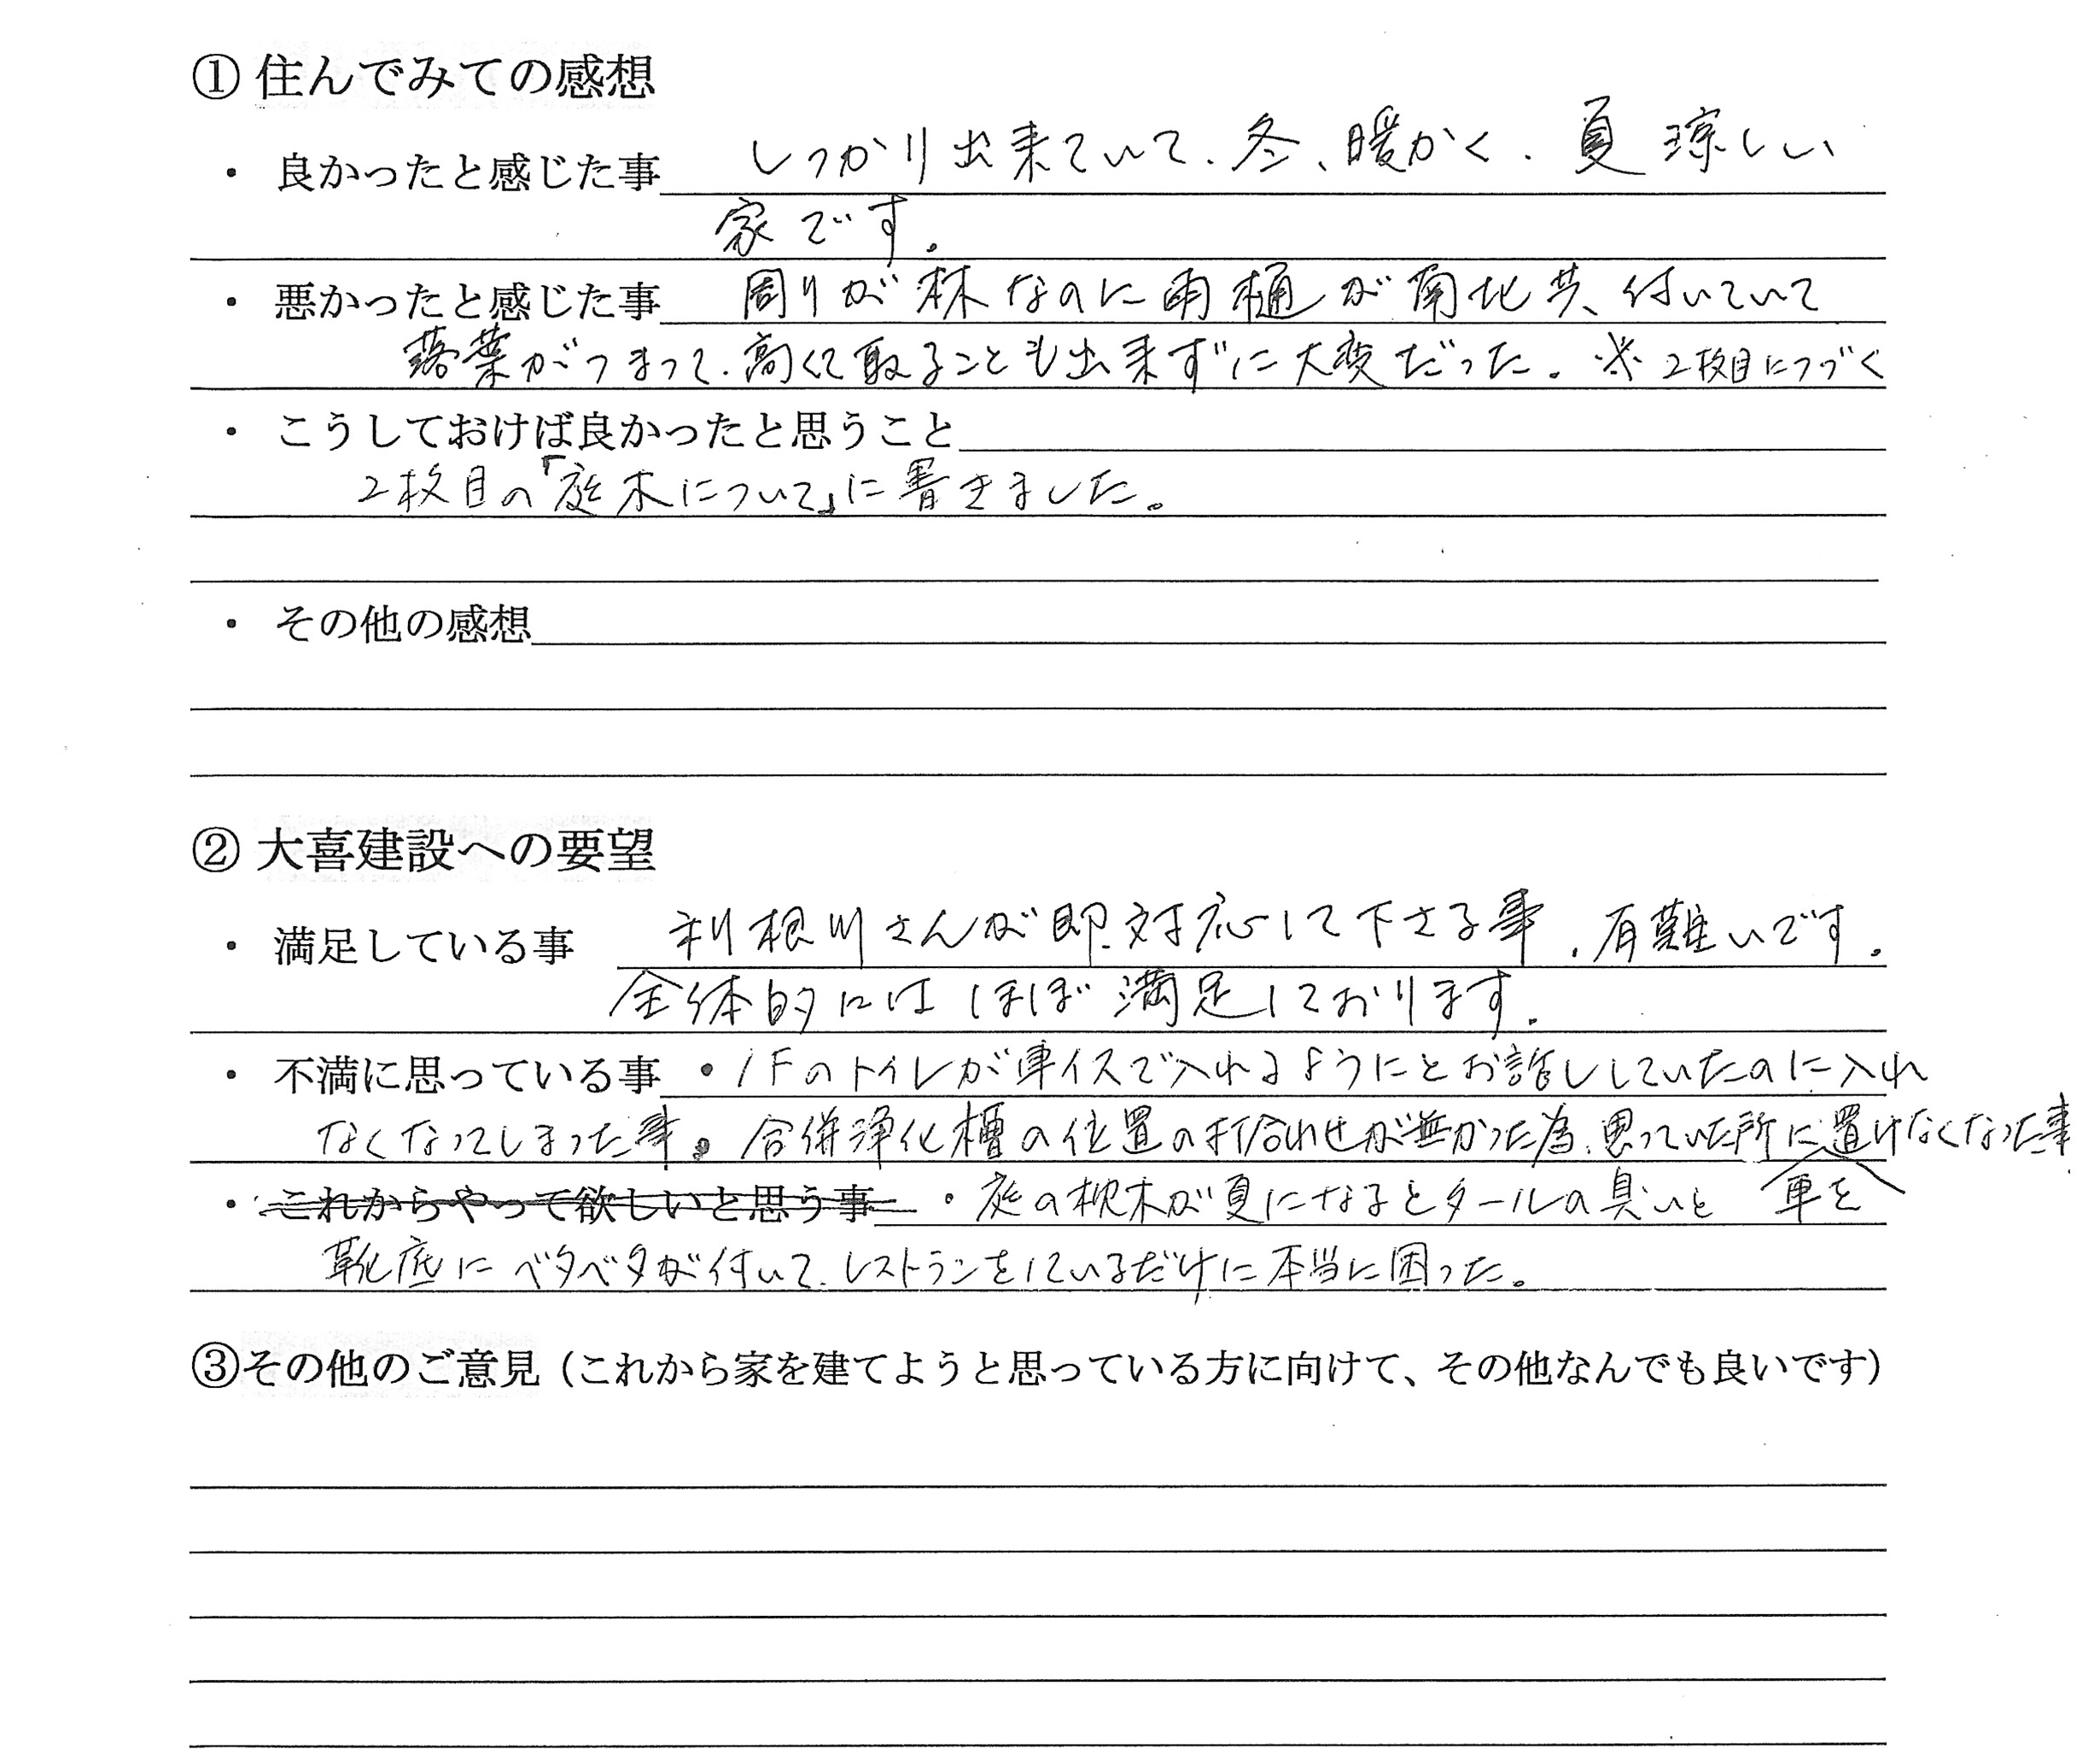 ① 住んでみての感想
・ 良かったと感じた事 しっかり出来ていて、冬、暖かく、夏 涼しい
家です。
・ 悪かったと感じた事 周りが林なのに雨樋が南北共、付いていて
落葉がつまって、高くて取ることも出来ずに大変だった。※2枚目につづく
・ こうしておけば良かったと思うこと
2枚目の「庭木について」に書きました。
・ その他の感想
② 大喜建設への要望
・ 満足している事 利根川さんが即、対応して下さる事、有難いです。
全体的にはほぼ満足しております。
・ 不満に思っている事 ・1Fのトイレが車イスで入れるようにとお話ししていたのに入れ
なくなってしまった事。合併浄化槽の位置の打合わせが無かった為、思っていた所に置けなくなった事
・ これからやって欲しいと思う事 ・庭の枕木が夏になるとタールの臭いと 車を
靴底にベタベタが付いて、レストランをしているだけに本当に困った。
③その他のご意見（これから家を建てようと思っている方に向けて、その他なんでも良いです）